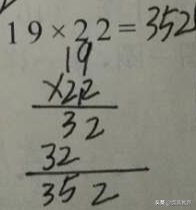 19×22=352
19
×22
32
32
352